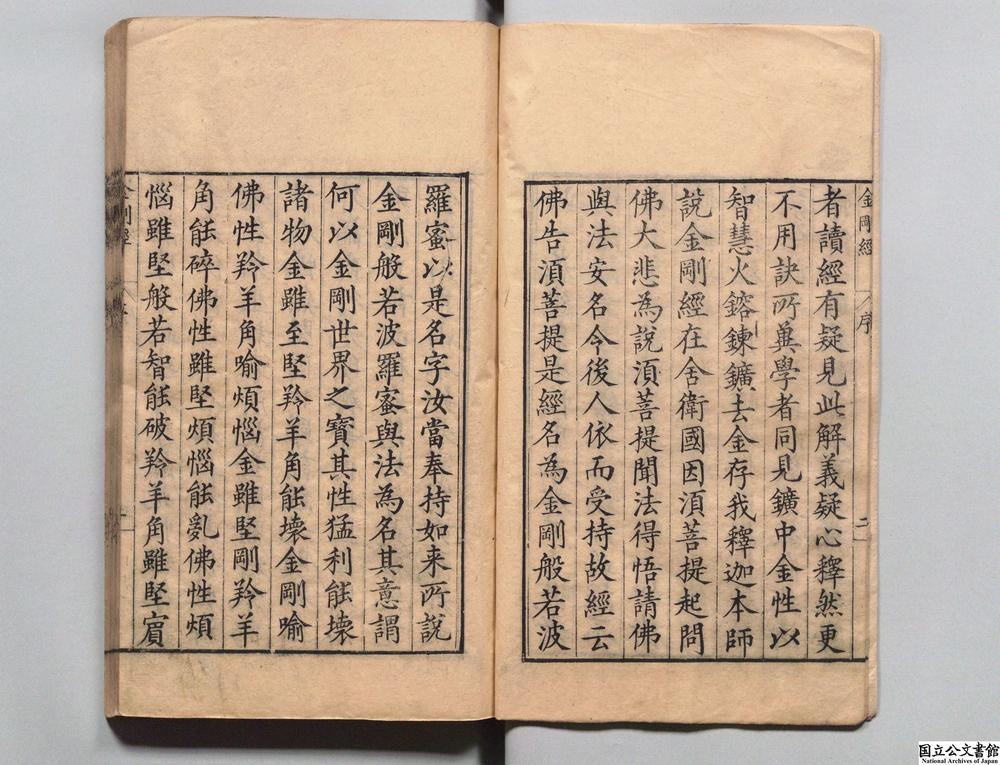 金剛經 序 二
者讀經有疑見此解義疑心釋然更
不用訣所兾學者同見鑛中金性以
智慧火鎔鍊鑛去金存我釋迦本師
說金剛經在舍衛國因湏菩提起問
佛大悲為說湏菩提聞法得悟請佛
與法安名令後人依而受持故經云
佛告湏菩提是經名為金剛般若波
羅蜜以是名字汝當奉持如来所說
金剛般若波羅蜜與法為名其意謂
何以金剛世界之寶其性猛利能壞
諸物金雖至堅羚羊角能壞金剛喻
佛性羚羊角喻煩惱金雖堅剛羚羊
角能碎佛性雖堅煩惱能亂佛性煩
惱雖堅般若智能破羚羊角雖堅賔
国立公文書館
National Archives of Japan